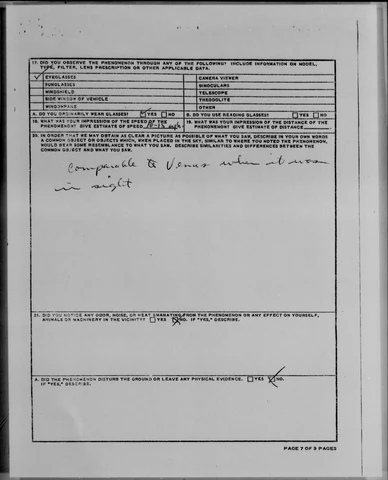 17. DID YOU OBSERVE THE PHENOMENON THROUGH ANY OF THE FOLLOWING? INCLUDE INFORMATION ON MODEL,
TYPE, FILTER, LENS PRESCRIPTION OR OTHER APPLICABLE DATA.
EYEGLASSES CAMERA VIEWER
SUNGLASSES BINOCULARS
WINDSHIELD TELESCOPE
SIDE WINDOW OF VEHICLE THEODOLITE
WINDOWPANE OTHER
A. DO YOU ORDINARILY WEAR GLASSES? YES NO B. DO YOU USE READING GLASSES? YES NO
18. WHAT WAS YOUR IMPRESSION OF THE SPEED OF THE
PHENOMENON? GIVE ESTIMATE OF SPEED 10-15
19. WHAT WAS YOUR IMPRESSION OF THE DISTANCE OF THE
PHENOMENON? GIVE ESTIMATE OF DISTANCE
20. IN ORDER THAT WE MAY OBTAIN AS CLEAR A PICTURE AS POSSIBLE OF WHAT YOU SAW, DESCRIBE IN YOUR OWN WORDS
A COMMON OBJECT OR OBJECTS WHICH, WHEN PLACED IN THE SKY, SIMILAR TO WHERE YOU NOTED THE PHENOMENON,
WOULD BEAR SOME RESEMBLANCE TO WHAT YOU SAW. DESCRIBE SIMILARITIES AND DIFFERENCES BETWEEN THE
COMMON OBJECT AND WHAT YOU SAW.
Comparable to Venus when it was
in sight
21. DID YOU NOTICE ANY ODOR, NOISE, OR HEAT EMANATING FROM THE PHENOMENON OR ANY EFFECT ON YOURSELF,
ANIMALS OR MACHINERY IN THE VICINITY? YES NO. IF "YES," DESCRIBE.
A. DID THE PHENOMENON DISTURB THE GROUND OR LEAVE ANY PHYSICAL EVIDENCE. YES NO.
IF "YES," DESCRIBE.
PAGE 7 OF 9 PAGES